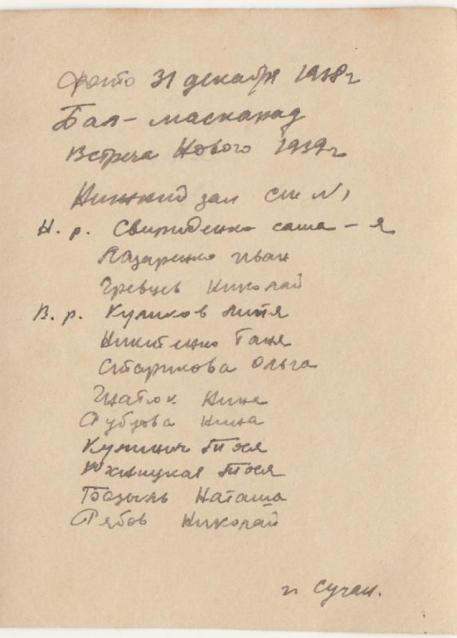 Фото 31 декабря 1938 г
Бал-маскарад
Встреча Нового 1939 г
Нижний зал СШ №1
Н. р. Свириденко Саша - я
Назаренко Иван
Гревцев Николай
В. р. Куликов Митя
Никитенко Таня
Старикова Ольга
Игнатюк Нина
Рубцова Нина
Кулинич Тося
Южницкая Тося
Бразыль Наташа
Рябов Николай
г. Сучан.